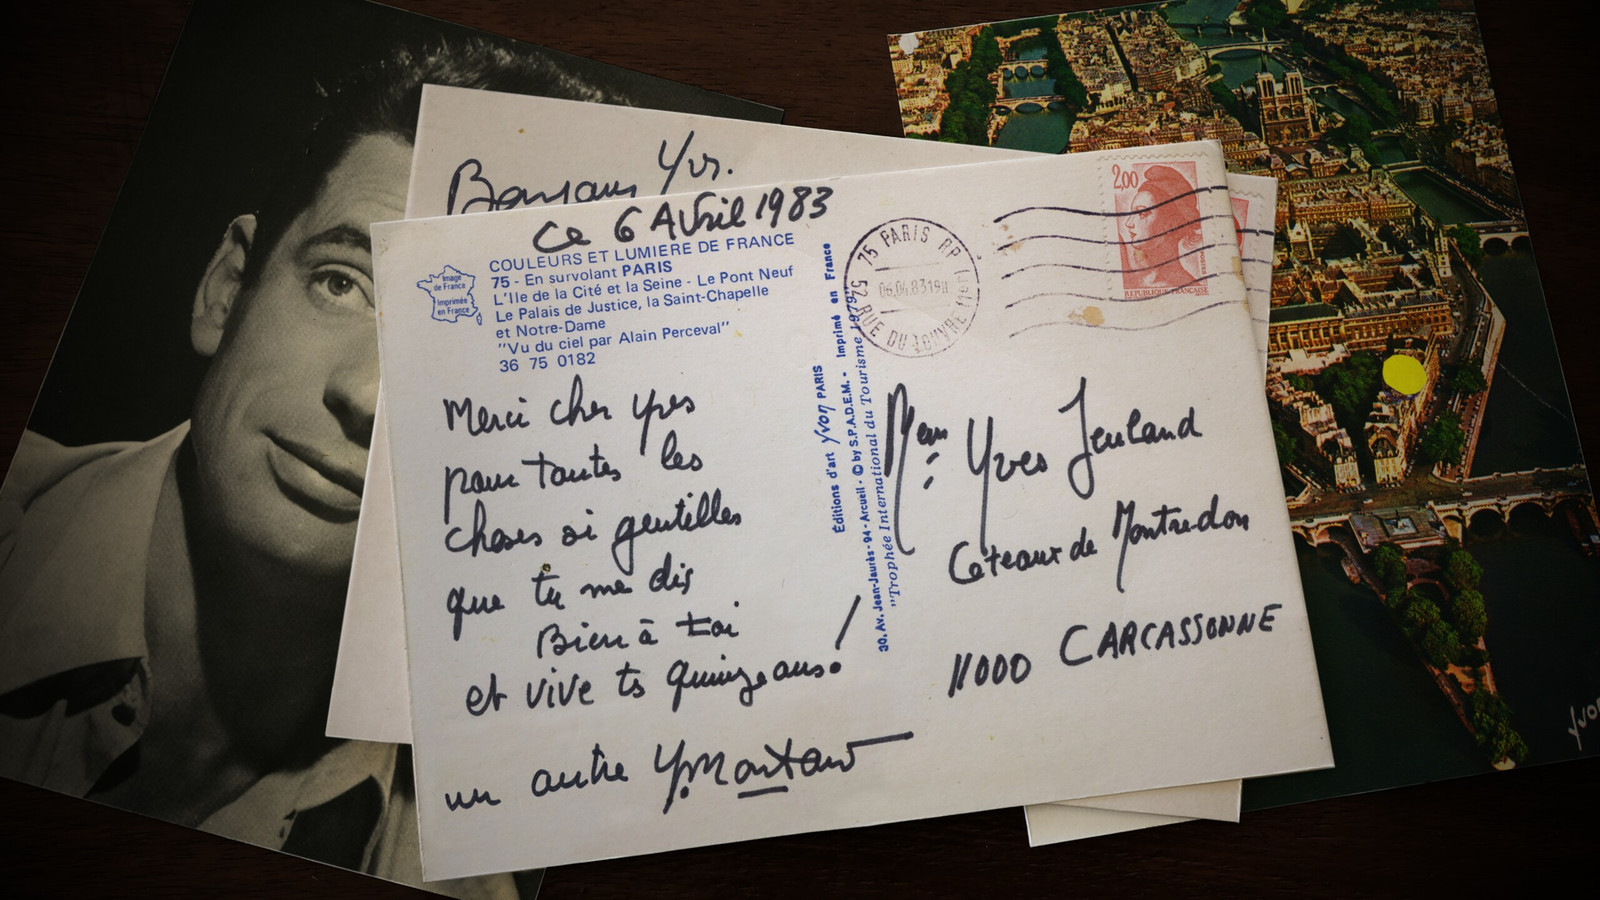 Bonjour Yves.
ce 6 Avril 1983
COULEURS ET LUMIERE DE FRANCE
75 - En survolant PARIS
L'Ile de la Cité et la Seine - Le Pont Neuf
Le Palais de Justice, la Saint-Chapelle
et Notre-Dame
"Vu du ciel par Alain Perceval"
36 75 0182
Image
de France
Imprimée
en France
Merci cher Yves
pour toutes les
choses si gentilles
que tu me dis
Bien à toi
et vive tes quinze ans!
un autre Y. Montand
Éditions d'art Yvon PARIS
30, Av. Jean-Jaurès - 94 - Arcueil - © by S.P.A.D.E.M. - Imprimé en France
"Trophée International du Tourisme 1979"
75 PARIS RP
06.04.83 19H
52 RUE DU LOUVRE
2,00
REPUBLIQUE FRANÇAISE
Yves Jeuland
Coteaux de Montredon
11000 CARCASSONNE
Yvon